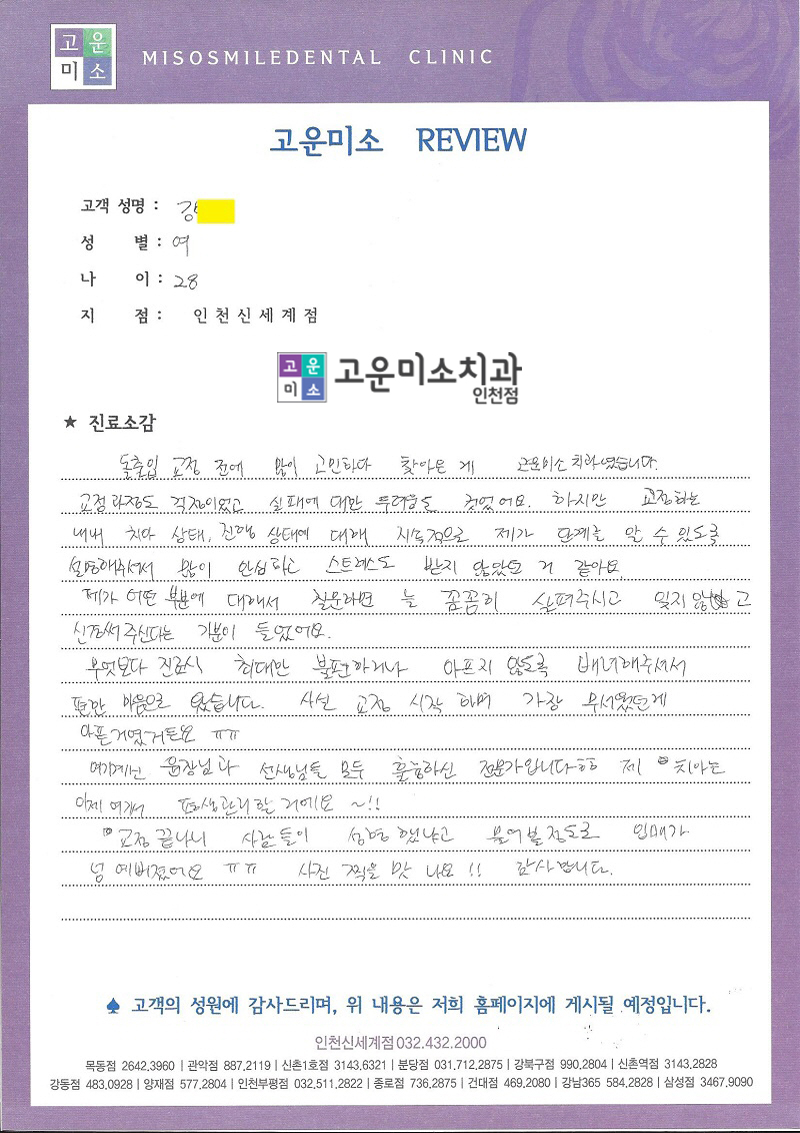 고운
미소
MISOSMILEDENTAL CLINIC
고운미소 REVIEW
고객 성명 : 강
성 별 : 여
나 이 : 28
지 점 : 인천신세계점
고운
미소
고운미소치과
인천점
★ 진료소감
돌출입 교정 전에 많이 고민하다 찾아온 게 고운미소치과였습니다.
교정과정도 걱정이었고 실패에 대한 두려움도 컸었어요. 하지만 교정하는
내내 치아 상태, 진행 상태에 대해 지속적으로 제가 단계를 알 수 있도록
설명해주셔서 많이 안심하고 스트레스도 받지 않았던 거 같아요.
제가 어떤 부분에 대해서 질문하면 늘 꼼꼼히 살펴주시고 잊지않고
신경써주신다는 기분이 들었어요.
무엇보다 진료시 최대한 불편하거나 아프지 않도록 배려해주셔서
편한 마음으로 왔습니다. 사실 교정 시작 하며 가장 무서웠던게
아픈거였거든요 ㅠㅠ
여기계신 원장님과 선생님들 모두 훌륭하신 전문가입니다ㅎㅎ 제 치아는
이제 여기서 평생관리할 거에요 ~!!
교정 끝나니 사람들이 성형했냐고 물어볼정도로 입매가
넘 예뻐졌어요 ㅠㅠ 사진 찍을 맛 나요!! 감사합니다.
♠ 고객의 성원에 감사드리며, 위 내용은 저희 홈페이지에 게시될 예정입니다.
인천신세계점032.432.2000
목동점 2642,3960 | 관악점 887,2119 | 신촌1호점 3143.6321 | 분당점 031,712,2875 | 강북구점 990,2804 | 신촌역점 3143,2828
강동점 483,0928 | 양재점 577,2804 | 인천부평점 032,511,2822 | 종로점 736,2875 | 건대점 469,2080 | 강남365 584,2828 | 삼성점 3467.9090